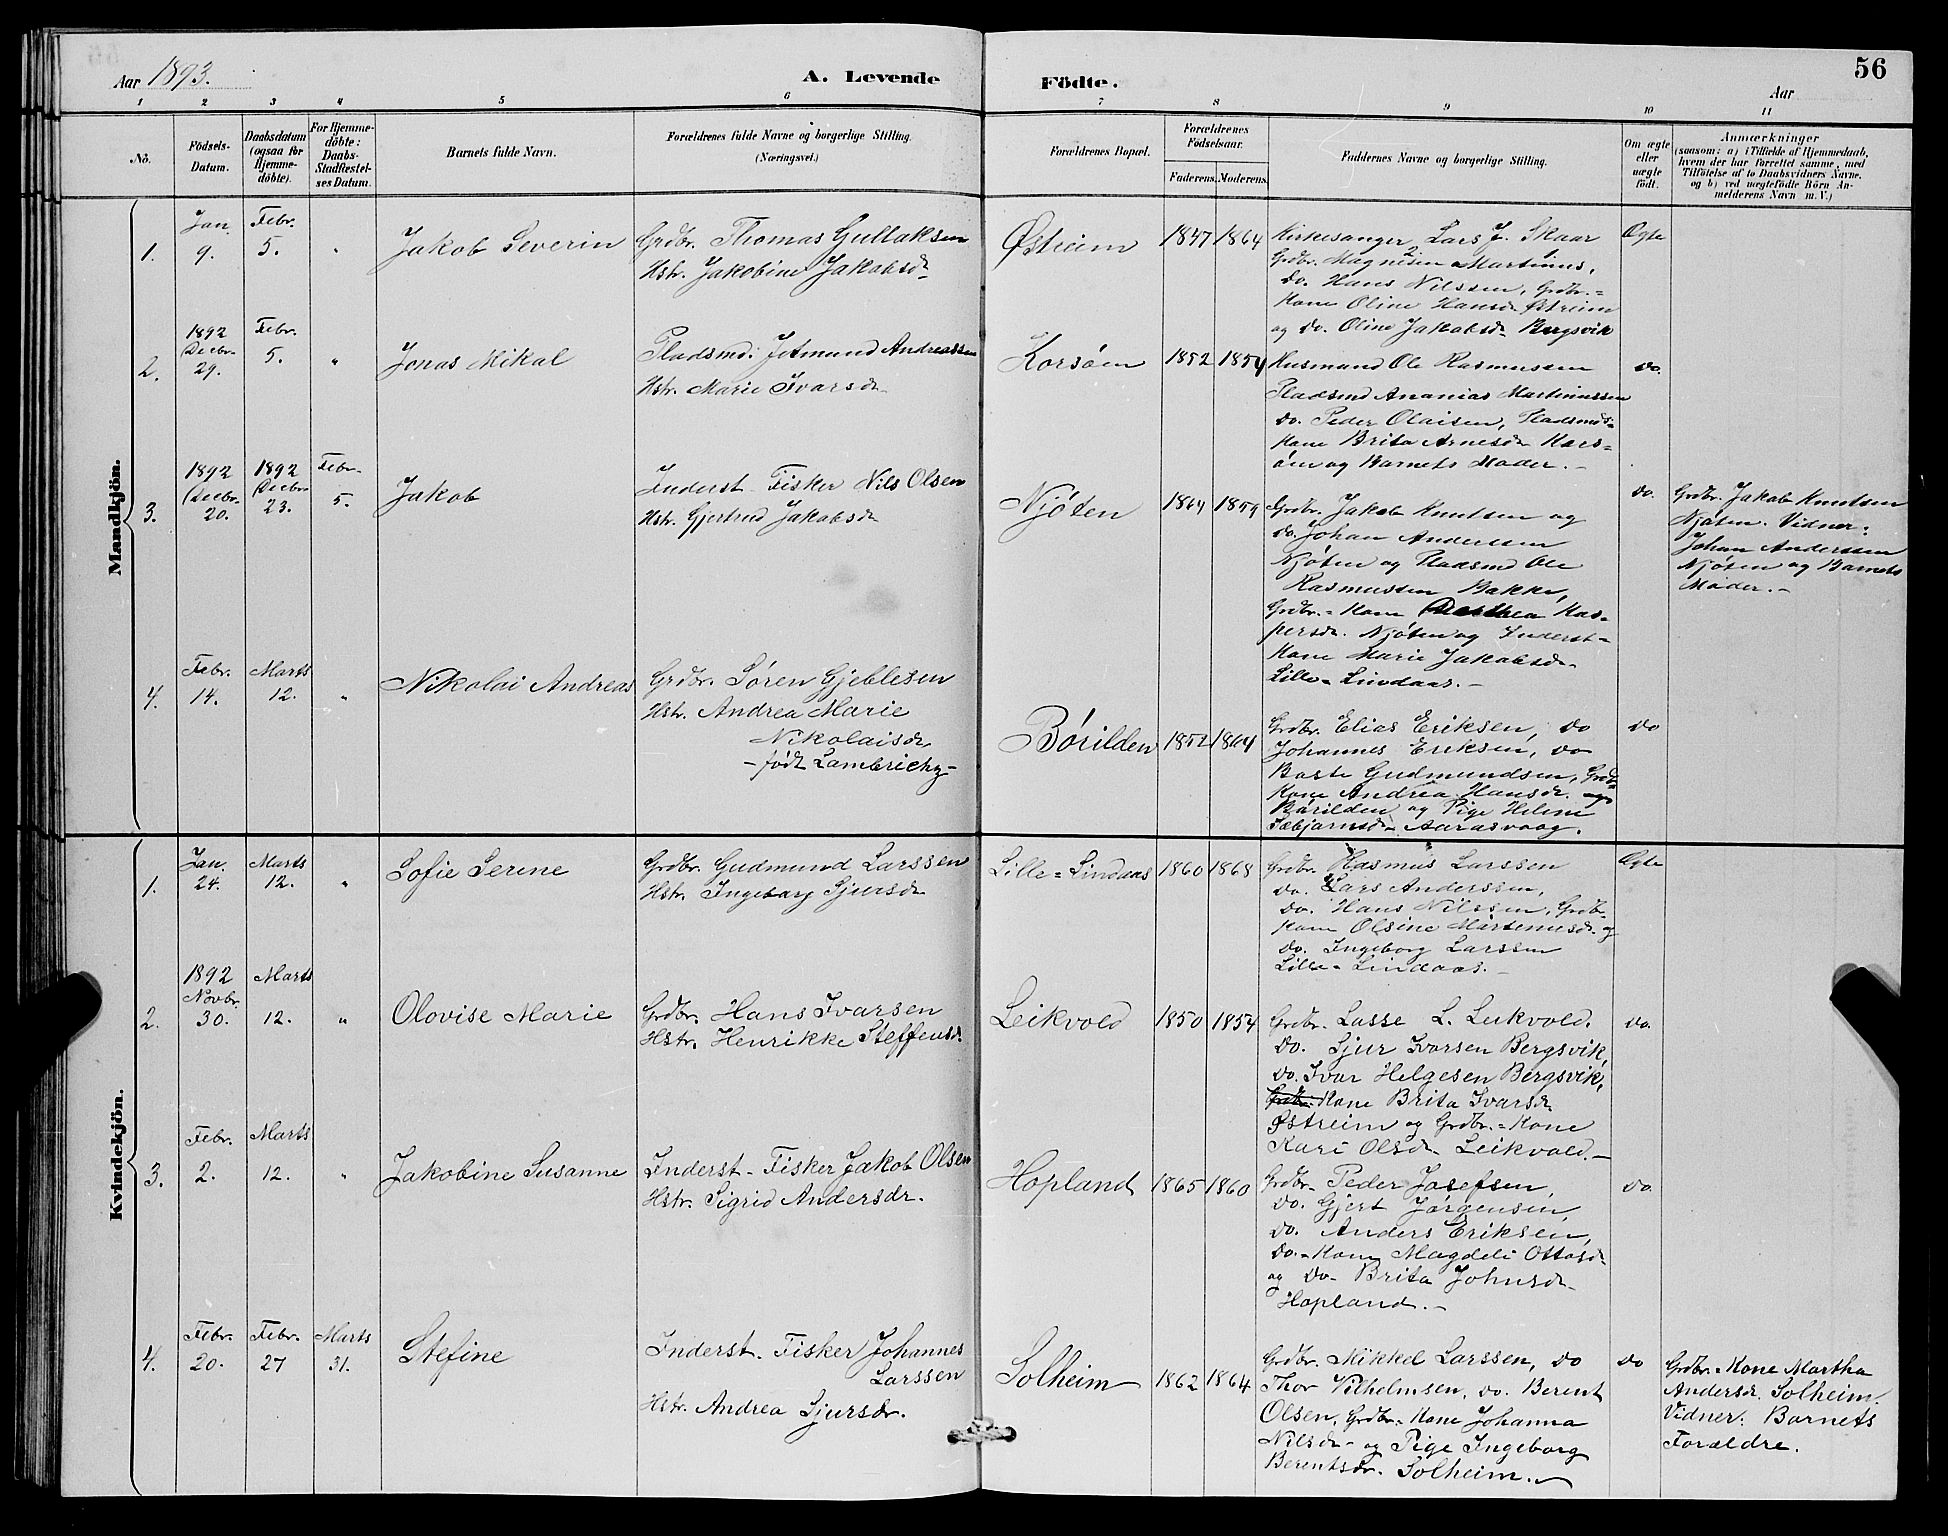 Aar 1893.
A. Levende Födte.
56
Aar
1 2 3 4 5 6 7 8 9 10 11
No.
Födsels-
Datum.
Daabsdatum
(ogsaa for
Hjemme-
döbte).
For Hjemme-
döbte:
Daabs-
Stadfæstel-
ses Datum.
Barnets fulde Navn.
Forældrenes fulde Navne og borgerlige Stilling.
(Næringsvei.)
Forældrenes Bopæl.
Forældrenes
Födselsaar.
Faderens. Moderens.
Faddernes Navne og borgerlige Stilling.
Om ægte
eller
uægte
født.
Anmærkninger
(saasom: a) i Tilfælde af Hjemmedaab,
hvem der har forrettet samme, med
Tilföielse af to Daabsvidners Navne,
og b) ved uægtefödte Börn An-
melderens Navn m. V.)
Mandkjön.
1.
Jan.
9.
Febr.
5.
"
Jakob Severin
Grdbr. Thomas Gullaksen
Hstr. Jakobine Jakobsdr
Østreim
1847 1864
Kirkesanger Lars J. Skaar
Grdbr. Magnesen Martinus,
do. Hans Nilssen, Grdbr.=
Kone Oline Hansdr Østreim
og do. Oline Jakobsdr Bergsvik
Ægte
2.
1892
Decbr.
29.
Febr.
5.
"
Jonas Mikal
Pladsmd. Jetmund Andreassen
Hstr. Marie Ivarsdr
Korsøen
1852 1854
Husmand Ole Rasmussen
Pladsmd Ananias Martinussen
do. Peder Olaisen, Pladsmds=
Kone Brita Arnesdr Kors-
øen og Barnets Moder.-
do.
3.
1892
Decbr.
20.
1892
Decbr.
23.
Febr.
5.
Jakob
Inderst Fisker Nils Olsen
Hstr. Gjertrud Jakobsdr
Njøten
1864 1859
Grdbr. Jakob Knutsen og
do. Johan Anderssen
Njøten og Pladsmd Ole
Rasmussen Bakke,
Grdbr.= Kone Dorthea Kas-
persdr. Njøten og Inderst-
Kone Marie Jakobsdr
Lille=Lindaas.-
do.
Grdbr. Jakob Knutsen
Njøten. Vidner:
Johan Anderssen
Njøten og Barnets
Moder.-
4.
Febr.
14.
Marts
12.
"
Nikolai Andreas
Grdbr. Søren Gjeblesen
Hstr. Andrea Marie
Nikolaisdr
- født Lambrichz -
Børilden
1852 1864
Grdbr. Elias Eriksen, do
Johannes Eriksen, do
Baste Gudmundsen, Grdb
Kone Andrea Hansdr.
Børilden og Pige Helene
Aarasvaag.
do
Kvindekjön.
1.
Jan.
24.
Marts
12.
"
Sofie Serine
Grdbr. Gudmund Larssen
Hstr. Ingeborg Sjursdr
Lille=Lindaas
1860 1868
Grdbr. Rasmus Larssen
do. Lars Anderssen,
do. Hans Nilssen, Grdb-
Kone Olsine Martinusdr. og
do. Ingeborg Larssen
Lille=Lindaas.-
Ægte
2.
1892
Novbr.
30.
Marts
12.
"
Olovise Marie
Grdbr. Hans Ivarsen
Hstr. Henrikke Steffensd.
Leikvold
1850 1854
Grdbr. Lasse L. Leikvold.
do. Sjur Ivarsen Bergsvik,
do. Ivar Helgesen Bergsvik,
Kone Brita Ivarsdr
Østreim og Grdbr.-Kone
Kari Olsdr Leikvold.-
do.
3.
Febr.
2.
Marts
12.
"
Jakobine Susanne
Inderst-Fisker Jakob Olsen
Hstr. Sigrid Andersdr.
Hopland
1865 1860
Grdbr. Peder Josefsen,
do. Gjert Jørgensen,
do. Anders Eriksen,
do.-Kone Magdeli Ottosdr
og do- Brita Johnsdr
Hopland.-
do.
4.
Febr.
20.
Febr.
27
Marts
31.
Stefine
Inderst. Fisker Johannes
Larssen
Hstr. Andrea Sjursdr.
Solheim
1862 1864
Grdbr. Mikkel Larssen, do
Thor Vilhelmsen, do. Berent
Olsen, Grdbr.=Kone Johanna
Nilsdr- og Pige Ingeborg
Berentsdr. Solheim.
do
Grdbr.-Kone Martha
Andersdr. Solheim.
Vidner: Barnets
Forældre.